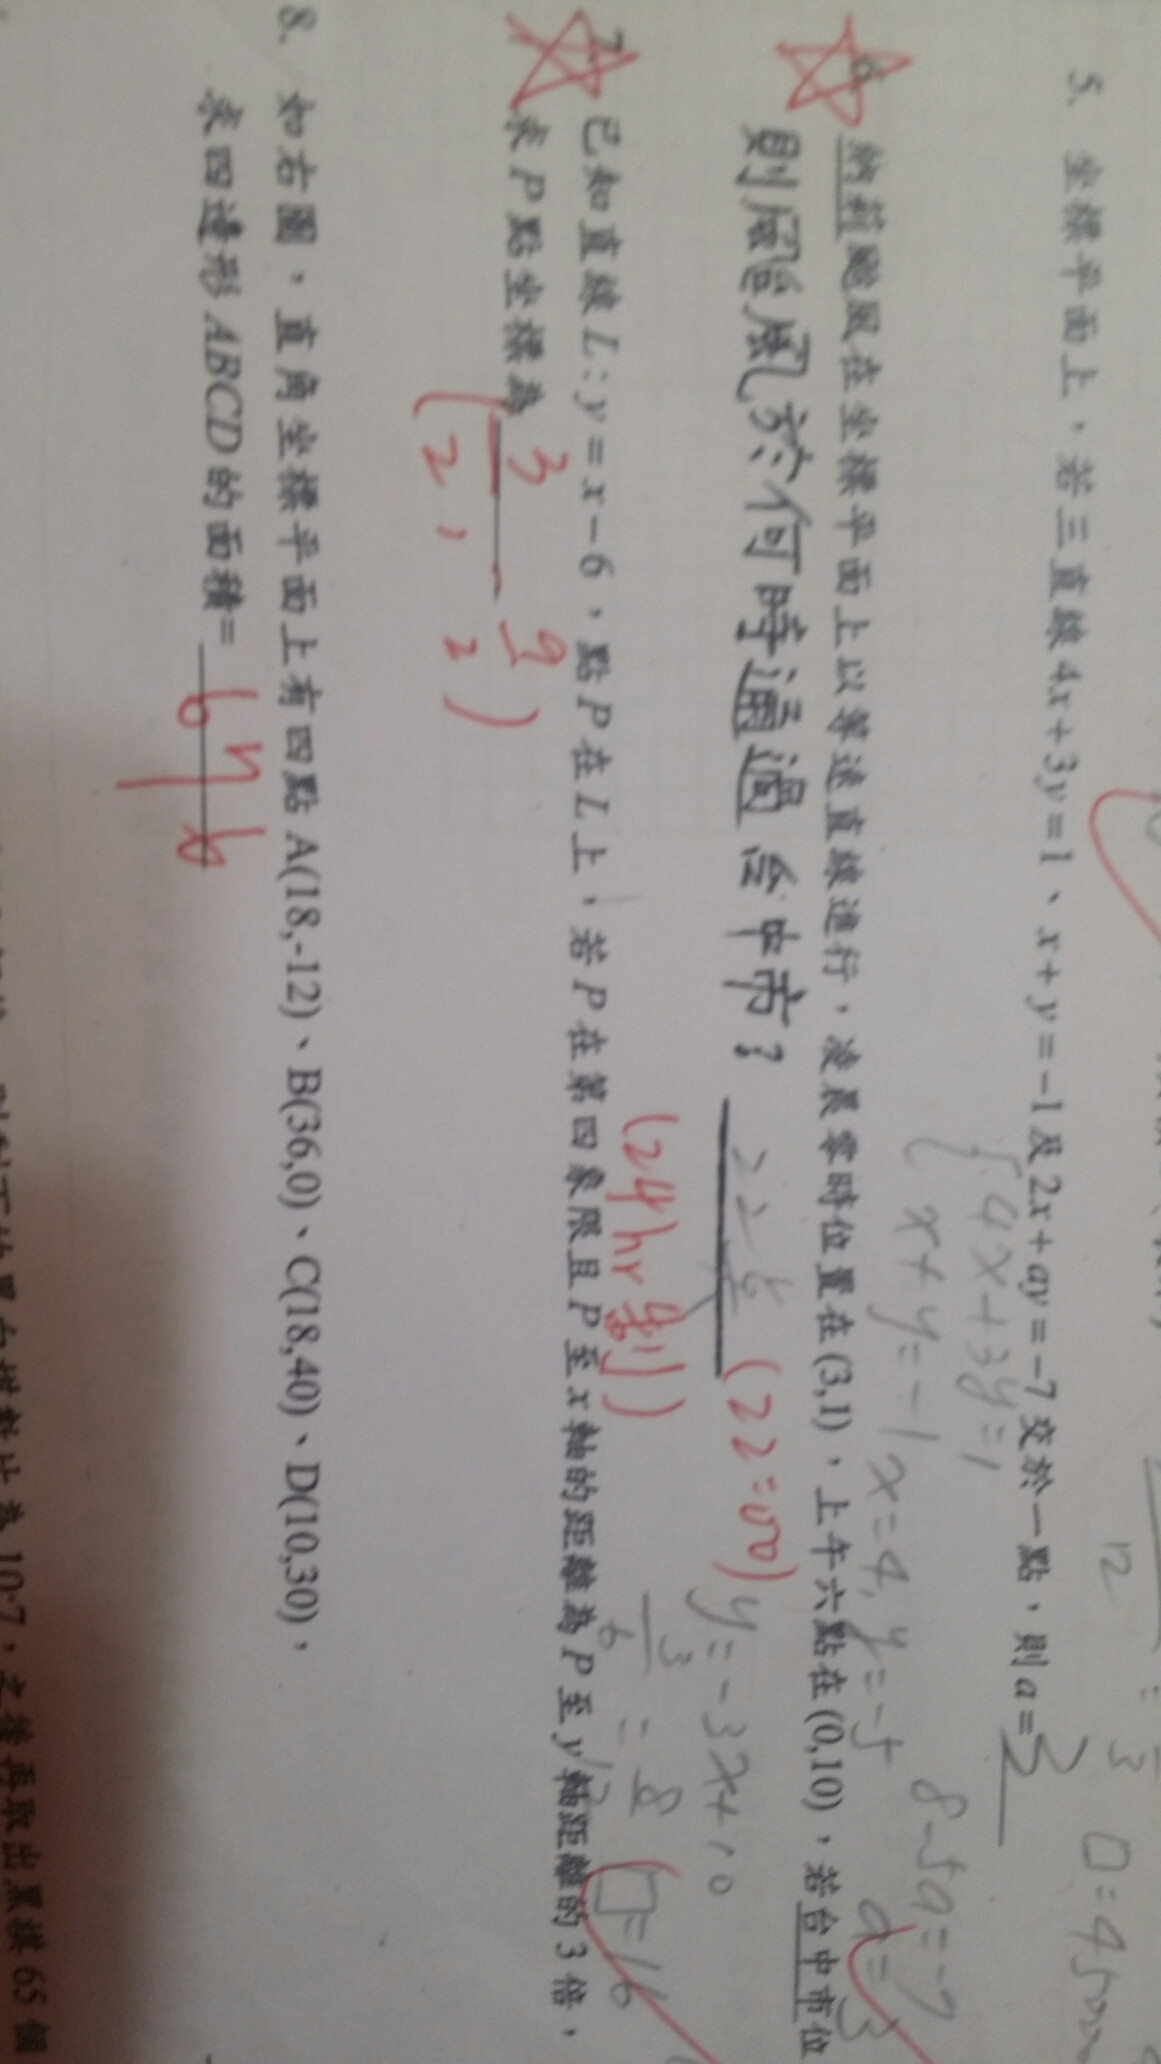 5. 坐標平面上，若三直線4x+3y=1、x+y=-1及2x+ay=-7交於一點，則a=3
{4x+3y=1
x+y=-1
x=4, y=-5
8-5a=-7
a=3
12
3
6. 納莉颱風在坐標平面上以等速直線進行，凌晨零時位置在(3,1)，上午六點在(0,10)，若台中市位
則颱風於何時通過台中市？ 22 (22:00)
(24hr制)
y=-3x+10
3/6 = 8/□ □=16
7. 已知直線L:y=x-6，點P在L上，若P在第四象限且P至x軸的距離為P至y軸距離的3倍，
求P點坐標為 (3/2, -9/2)
8. 如右圖，直角坐標平面上有四點A(18,-12)、B(36,0)、C(18,40)、D(10,30)，
求四邊形ABCD的面積= 646
取出黑棋65個